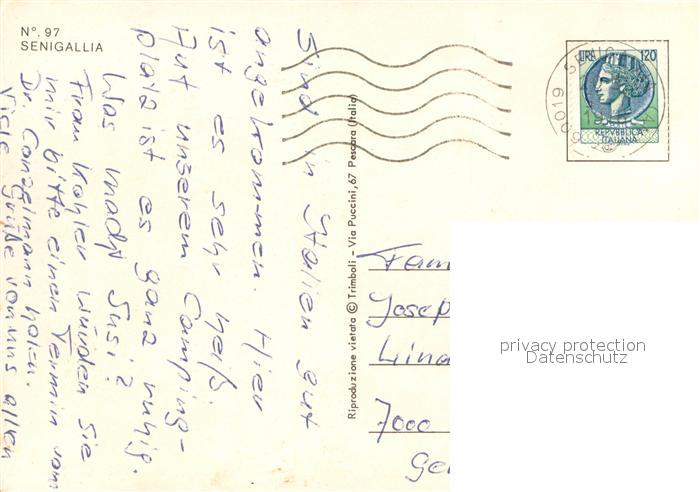 N°. 97
SENIGALLIA
Sind in Italien gut
angekommen. Hier
ist es sehr heiß.
Auf unserem Camping-
platz ist es ganz ruhig.
Was macht Susi?
Frau Kohler würden Sie
mir bitte einen Termin vom
Dr Conzelmann holen.
Viele Grüße von uns allen
Riproduzione vietata © Trimboli - Via Puccini, 67 Pescara (Italia)
LIRE 120
REPVBBLICA
ITALIANA
Fam
Josep
Lina
7000
Ge
privacy protection
Datenschutz